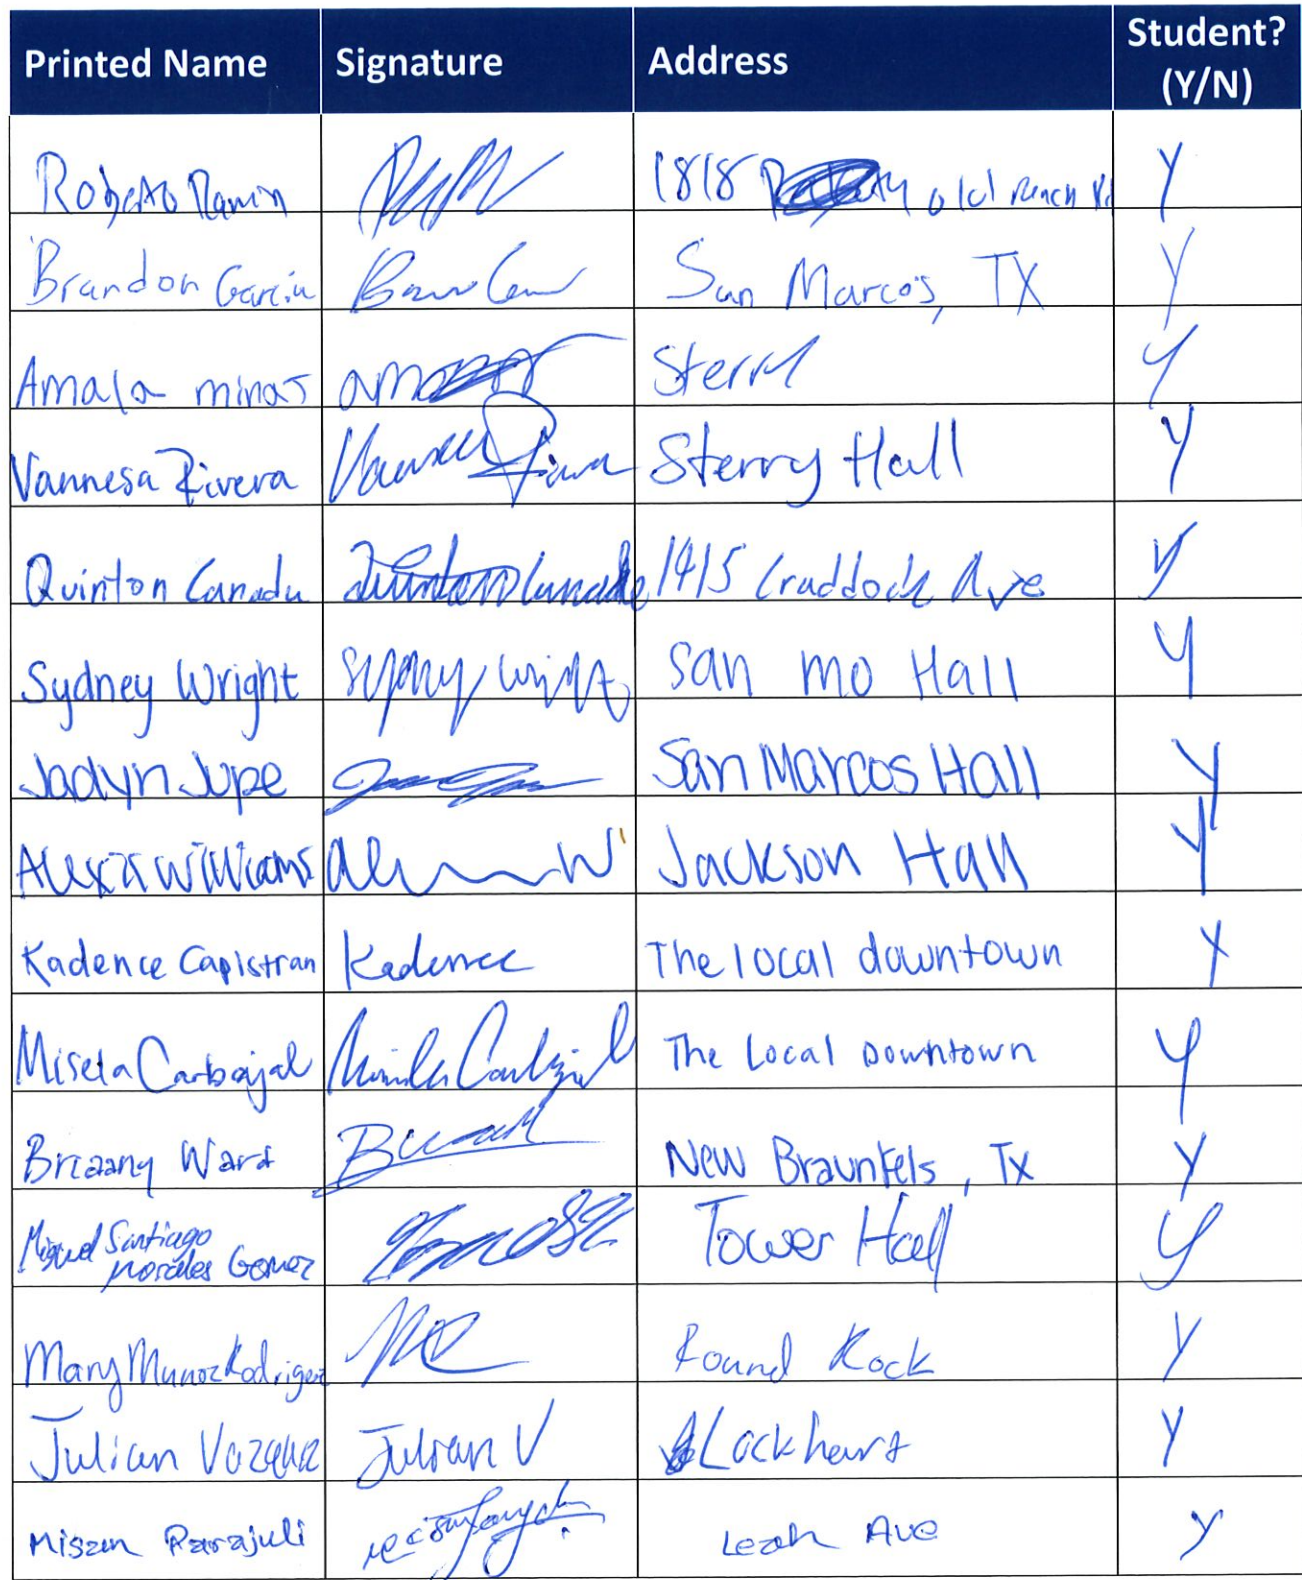 Printed Name Signature Address Student? (Y/N)
Roberto 1818 old ranch Y
Brandon Garcia San Marcos, TX Y
Amala minas Sterry Y
Vannesa Rivera Vannesa Rivera Sterry Hall Y
Quinton Canada Quinton Canada 1415 Craddock Ave Y
Sydney Wright Sydney Wright San mo Hall Y
Jadyn Jupe San Marcos Hall Y
Alexia Williams Jackson Hall Y
Kadence Capistran Kadence The local downtown Y
Misela Carbajal The Local Downtown Y
Ward New Braunfels, Tx Y
Miguel Santiago
Morales Gomez Tower Hall Y
Mary Munoz Rodriguez Round Rock Y
Julian Vazquez Julian V Lockhart Y
Parajuli Leah Ave Y